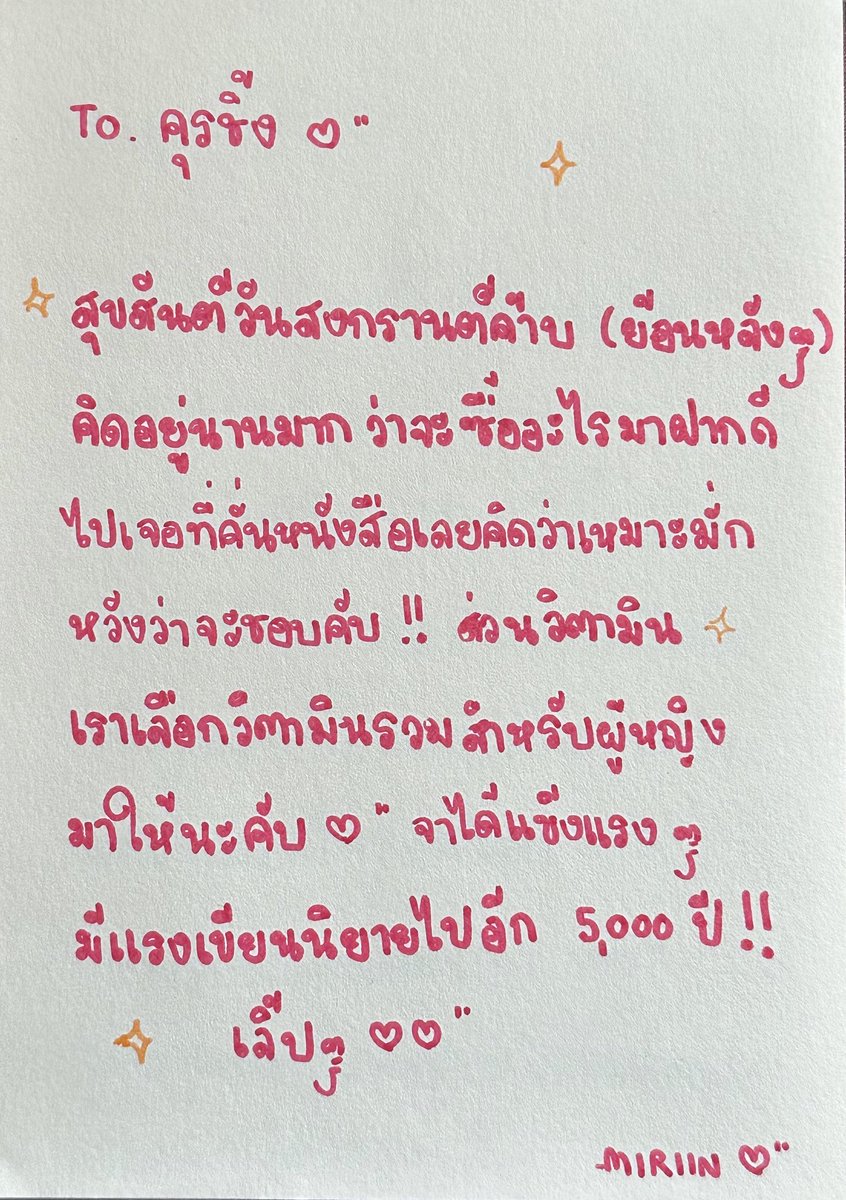 To. คุรซิ้ง ♡"
สุขสันต์วันสงกรานต์ค้าบ (ย้อนหลังๆ)
คิดอยู่นานมาก ว่าจะซื้ออะไรมาฝากดี
ไปเจอที่คั่นหนังสือเลยคิดว่าเหมาะมั่ก
หวังว่าจะชอบคับ !! ส่วนวิตามิน
เราเลือกวิตามินรวมสำหรับผู้หญิง
มาให้นะคับ ♡" จาได้แข็งแรงๆ
มีแรงเขียนนิยายไปอีก 5,000 ปี !!
เลิ้ปๆ ♡♡"
-MIRIIN ♡"